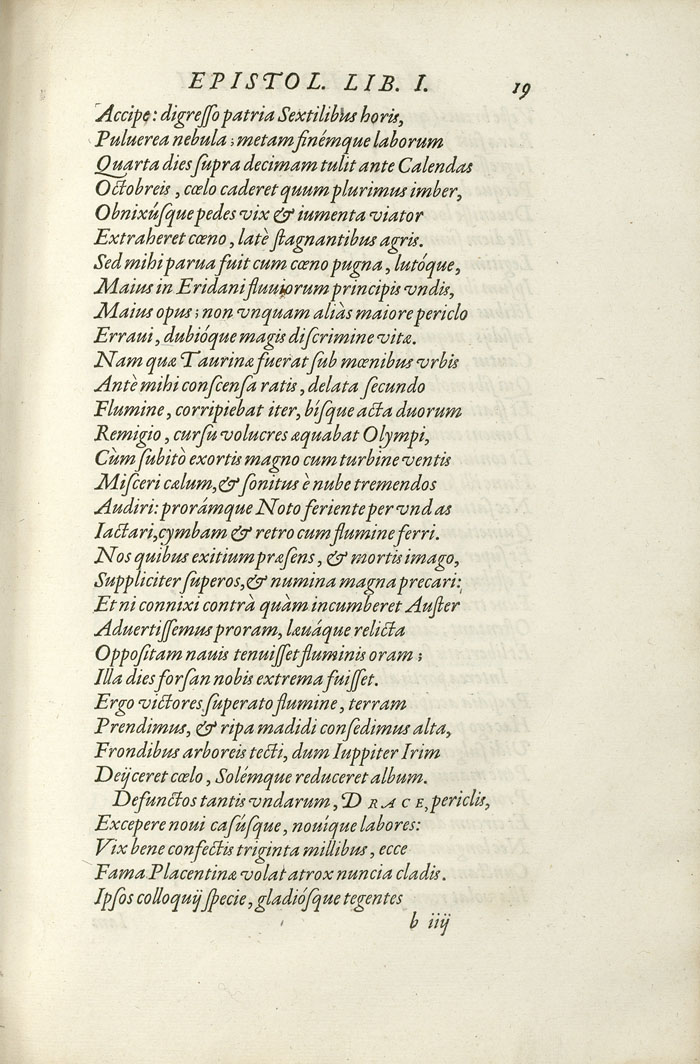 EPISTOL. LIB. I. 19
Accipe: digreſſo patria Sextilibus horis,
Puluerea nebula; metam finémque laborum
Quarta dies ſupra decimam tulit ante Calendas
Octobreis, cœlo caderet quum plurimus imber,
Obnixúſque pedes vix & iumenta viator
Extraheret cœno, latè ſtagnantibus agris.
Sed mihi parua fuit cum cœno pugna, lutóque,
Maius in Eridani fluuiorum principis vndis,
Maius opus; non vnquam aliàs maiore periclo
Erraui, dubióque magis diſcrimine vitæ.
Nam quæ Taurinæ fuerat ſub mœnibus vrbis
Antè mihi conſcenſa ratis, delata ſecundo
Flumine, corripiebat iter, biſque acta duorum
Remigio, curſu volucres æquabat Olympi,
Cùm ſubitò exortis magno cum turbine ventis
Miſceri cælum, & ſonitus è nube tremendos
Audiri: prorámque Noto feriente per vndas
Iactari, cymbam & retro cum flumine ferri.
Nos quibus exitium præſens, & mortis imago,
Suppliciter ſuperos, & numina magna precari:
Et ni connixi contrà quàm incumberet Auſter
Aduertiſſemus proram, læuáque relicta
Oppoſitam nauis tenuiſſet fluminis oram;
Illa dies forſan nobis extrema fuiſſet.
Ergo victores ſuperato flumine, terram
Prendimus, & ripa madidi conſedimus alta,
Frondibus arboreis tecti, dum Iuppiter Irim
Deijceret cœlo, Solémque reduceret album.
Defunctos tantis vndarum, DRACE, periclis,
Excepere noui caſúſque, nouíque labores:
Vix bene confectis triginta millibus, ecce
Fama Placentinæ volat atrox nuncia cladis.
Ipſos colloquij ſpecie, gladióſque tegentes
b iiij